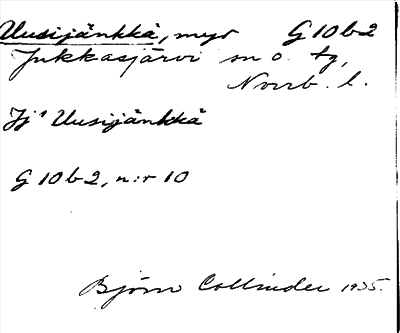 Uusijänkkä, myr G10b2
Jukkasjärvi sn o. tg,
Norrb. l.
Jj' Uusijänkkä
G10b2, n:r 10
Björn Collinder 1935.